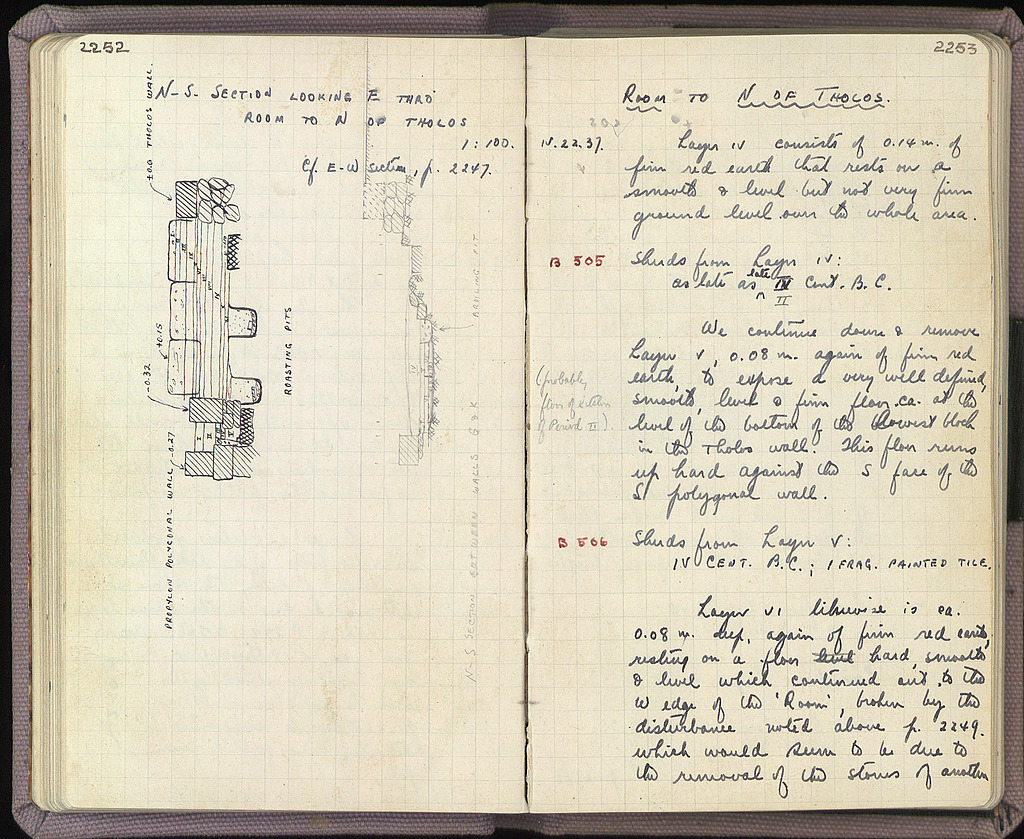 2252
N-S- SECTION LOOKING E THRO
ROOM TO N OF THOLOS
1:100.
Cf. E-W section, p. 2247.
±0.0 THOLOS WALL.
+0.15
-0.32
-0.27
PROPYLON POLYGONAL WALL
ROASTING PITS
I II
IV
BROILING PIT
N-S SECTION BETWEEN WALLS G & K
2253
ROOM TO N OF THOLOS.
IV.22.37. Layer IV consists of 0.14 m. of
firm red earth that rests on a
smooth & level but not very firm
ground level over the whole area.
B 505 Sherds from Layer IV:
as late as late IV Cent. B.C.
II
We continue down & remove
Layer V, 0.08 m. again of firm red
earth, to expose a very well defined,
smooth, level & firm floor ca. at the
level of the bottom of the lowest block
in the Tholos wall. This floor runs
up hard against the S face of the
S polygonal wall.
(probably
floor of
of Period II).
B 506 Sherds from Layer V:
IV CENT. B.C.; 1 FRAG. PAINTED TILE.
Layer VI likewise is ca.
0.08 m. deep, again of firm red earth,
resting on a floor level hard, smooth
& level which continued out to the
W edge of the 'Room', broken by the
disturbance noted above p. 2249.
which would seem to be due to
the removal of the stones of another